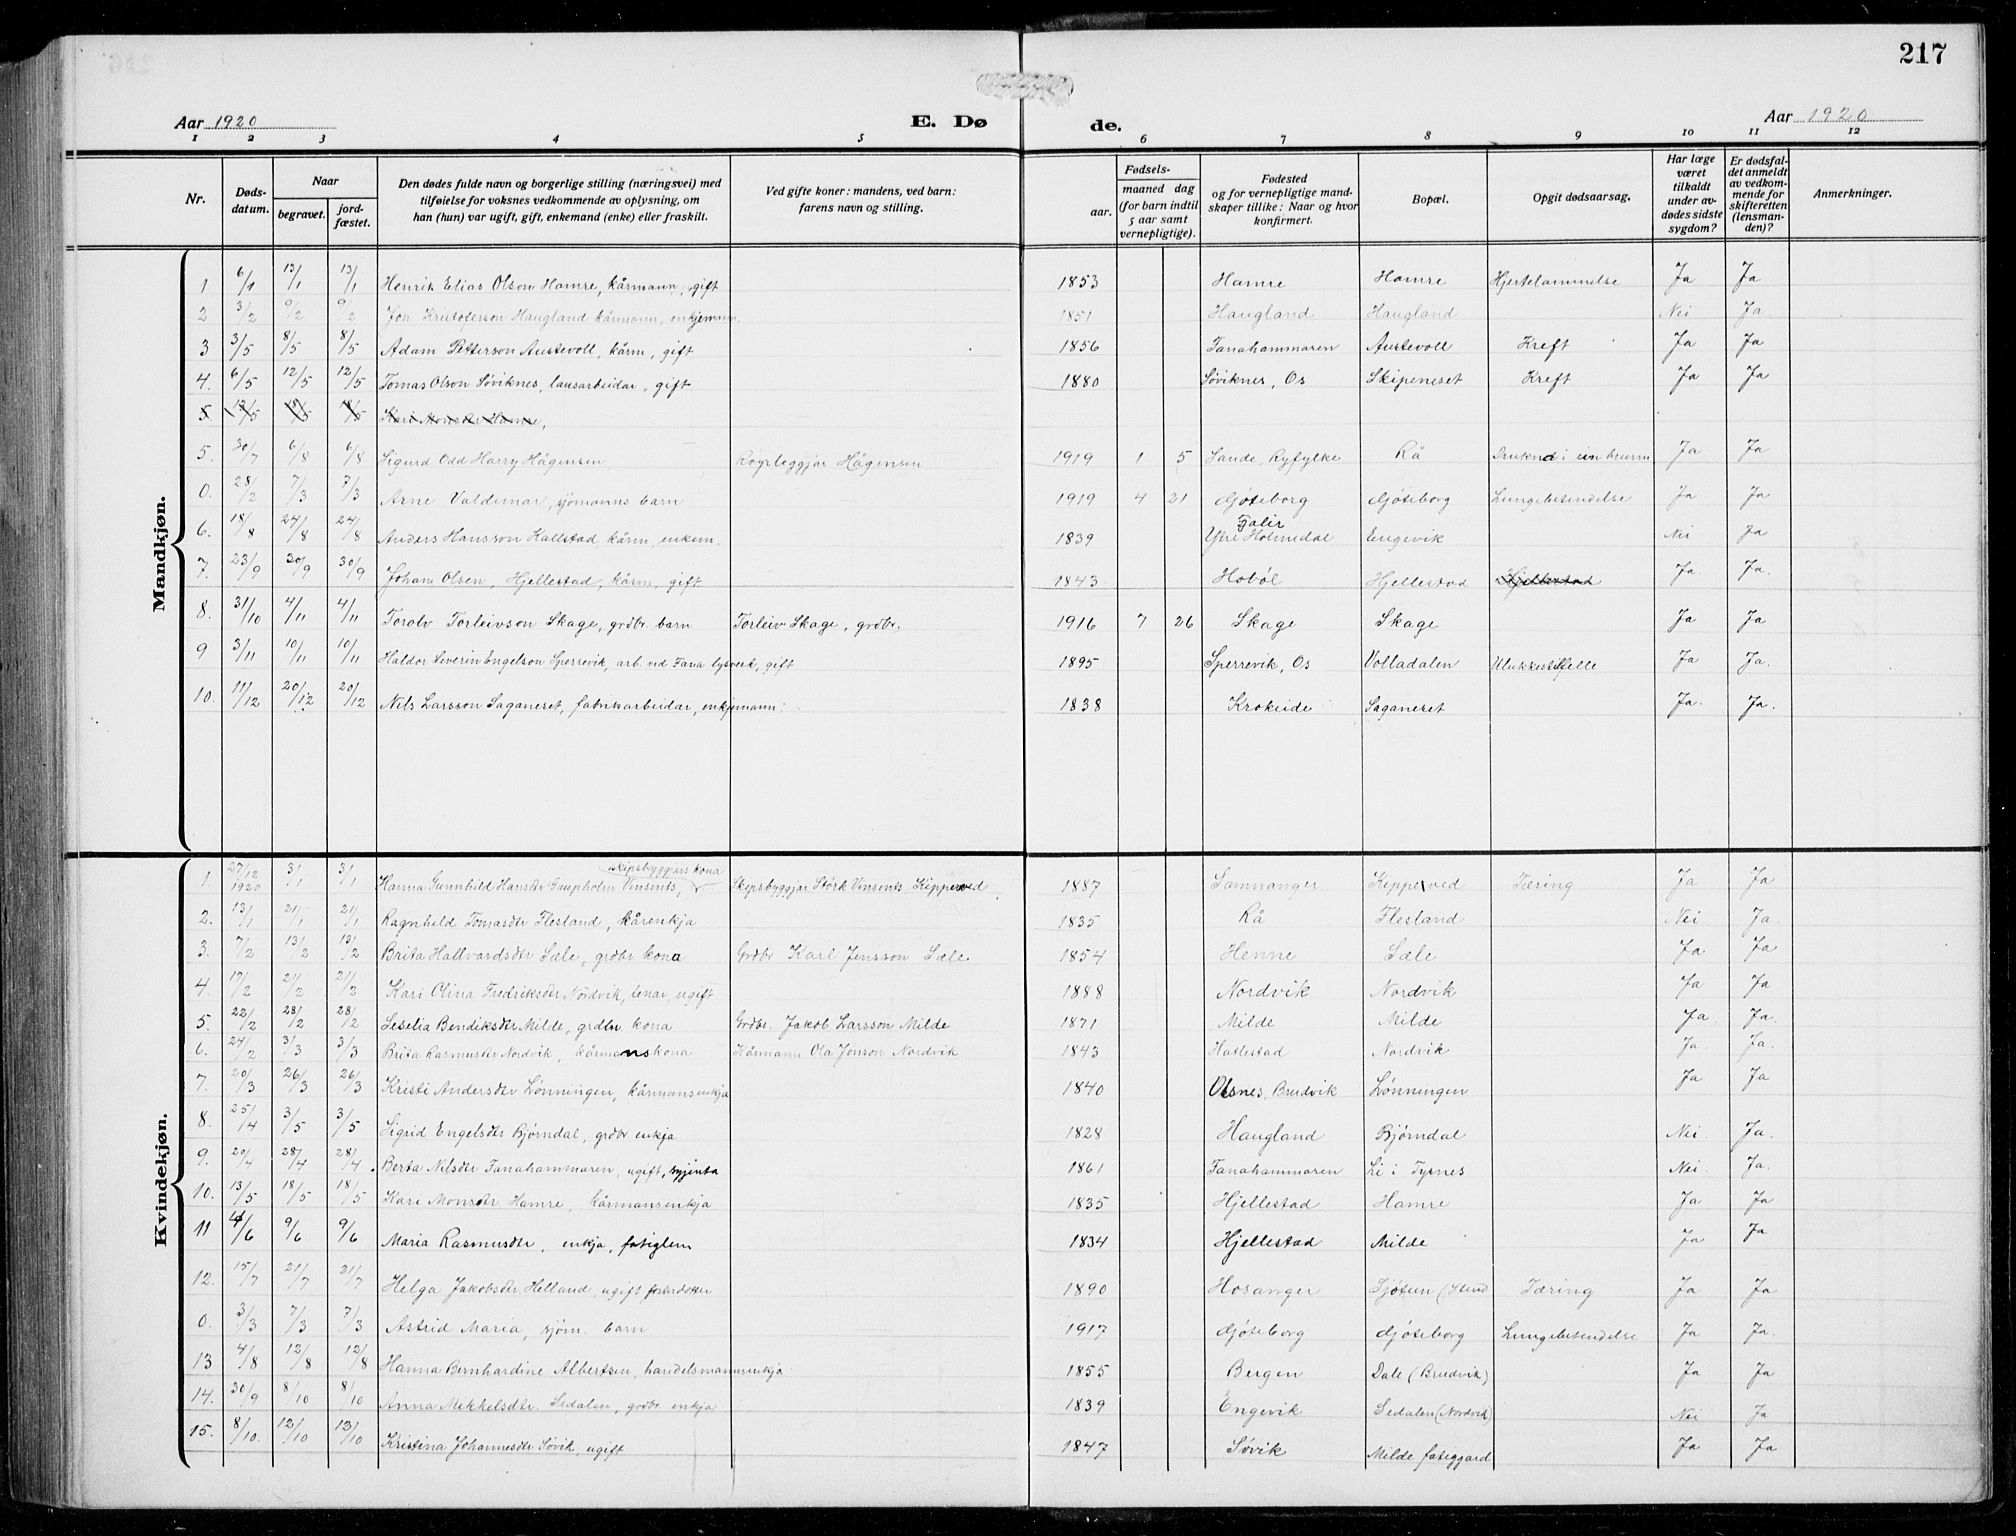 217
Aar 1920 E. Dø de. Aar 1920
1 2 3 4 5 6 7 8 9 10 11 12
Nr. Døds-datum. Naar begravet. jord-fæstet. Den dødes fulde navn og borgerlige stilling (næringsvei) med tilføielse for voksnes vedkommende av oplysning, om han (hun) var ugift, gift, enkemand (enke) eller fraskilt. Ved gifte koner: mandens, ved barn: farens navn og stilling. Fødsels- aar. maaned dag (for barn indtil 5 aar samt vernepligtige). Fødested og for vernepligtige mand-skaper tillike: Naar og hvor konfirmert. Bopæl. Opgit dødsaarsag. Har læge været tilkaldt under av-dødes sidste sygdom? Er dødsfal-det anmeldt av vedkom-mende for skifteretten (lensman-den)? Anmerkninger.
Mandkjøn.
1 6/1 13/1 13/1 Henrik Elias Olson Hamre, kårmann, gift 1853 Hamre Hamre Hjertelammelse Ja Ja
2 3/2 9/2 9/2 Jon Kristoferson Haugland kårmann, enkjemann. 1851 Haugland Haugland Nei Ja
3 3/5 8/5 8/5 Adam Petterson Austevoll, kårm, gift 1856 Fanahammaren Austevoll Kreft Ja Ja
4. 6/5 12/5 12/5 Tomas Olson Søviknes, lausarbeidar, gift 1880 Søviknes, Os Skipeneset Kreft Ja Ja
5. 13/5 18/5 18/5 Kari Monsdtr Hamre,
5. 30/7 6/8 6/8 Sigurd Odd Harry Hågensen, Røyrleggjar Hågensen 1919 1 5 Sande, Ryfylke Rå Druknd i ein brunn Ja Ja
0. 28/2 7/3 7/3 Arne Valdemar, sjømanns barn 1919 4 21 Gjøteborg Gjøteborg Lungebetendelse Ja Ja
6. 18/8 24/8 24/8 Anders Hansson Hallstad, kårm, enkem. 1839 Falir Ytre Holmedal Engevik Nei Ja
7. 23/9 30/9 30/9 Johan Olsen, Hjellestad, kårm, gift 1843 Hobøl Hjellestad Hjellestad Ja. Ja.
8. 31/10 4/11 4/11 Torolv Torleivson Skage, grdbr. barn Torleiv Skage, grdbr. 1916 7 26 Skage Skage Ja Ja
9 3/11 10/11 10/11 Haldor Severin Engelson Sperrevik, arb. ved Fana lysverk, gift 1895 Sperrevik, Os Volladalen Ulukkestilfelle Ja Ja.
10. 11/12 20/12 20/12 Nils Larsson Saganeset, fabrikarbeidar, enkjemann. 1838 Krokeide Saganeset Ja. Ja.
Kvindekjøn.
1. 27/12 1920 3/1 3/1 Hanna Gunnhild Hansdtr Gaupholm Vinsents, skipsbyggjars kona Skipsbyggjar Størk Vinsents, Kipperved 1887 Samnanger Kipperved Tæring Ja Ja
2. 13/1 21/1 21/1 Ragnhild Tomasdtr Flesland, kårenkja 1835 Rå Flesland Nei Ja.
3. 7/2 13/2 13/2 Brita Hallvardsdtr Sæle, grdbr. kona Grdbr Karl Jensson Sæle 1854 Henne Sæle Ja Ja
4. 12/2 21/2 21/2 Kari Olina Fredriksdtr Nordvik, tenar, ugift 1888 Nordvik Nordvik Ja Ja
5. 22/2 28/2 28/2 Seselia Bendiksdtr Milde, grdbr kona Grdbr. Jakob Larsson Milde 1871 Milde Milde Ja. Ja.
6. 24/2 3/3 3/3 Brita Rasmusdtr Nordvik, kårmanskona Kårmann Ola Jonson Nordvik 1843 Hatlestad Nordvik Ja. Ja.
7. 20/3 26/3 26/3 Kristi Andersdtr Lønningen, kårmansenkja 1840 Olsnes, Brudvik Lønningen Ja Ja
8. 25/4 3/5 3/5 Sigrid Engelsdtr Bjørndal, grdbr enkja 1828 Haugland Bjørndal Nei. Ja.
9. 20/4 28/4 28/4 Berta Nilsdtr Fanahammaren, ugift, syjinta 1861 Fanahammaren Li i Tysnes Nei. Ja.
10. 13/5 18/5 18/5 Kari Monsdtr Hamre, kårmansenkja 1835 Hjellestad Hamre Ja Ja
11 4/6 9/6 9/6 Maria Rasmusdtr, enkja, fatiglem 1834 Hjellestad Milde Ja Ja
12. 15/7 21/7 21/7 Helga Jakobsdtr Helland, ugift, fosterdotter 1890 Hosanger Sjøtun (Stend Tæring Ja Ja
0. 3/3 7/3 7/3 Astrid Maria, sjøm. barn 1917 Gjøteborg Gjøteborg Lungebetendelse Ja Ja.
13 4/8 12/8 12/8 Hanna Bernhardine Albertsen, handelsmannsenkja 1855 Bergen Dale (Brudvik) Ja Ja
14. 30/9 8/10 8/10 Anna Mikkelsdtr. Sedalen, grdbr enkja 1839 Engevik Sedalen (Nordvik) Nei Ja
15. 8/10. 12/10 12/10 Kristina Johannesdtr Søvik, ugift 1847 Søvik Milde fatiggard Ja Ja